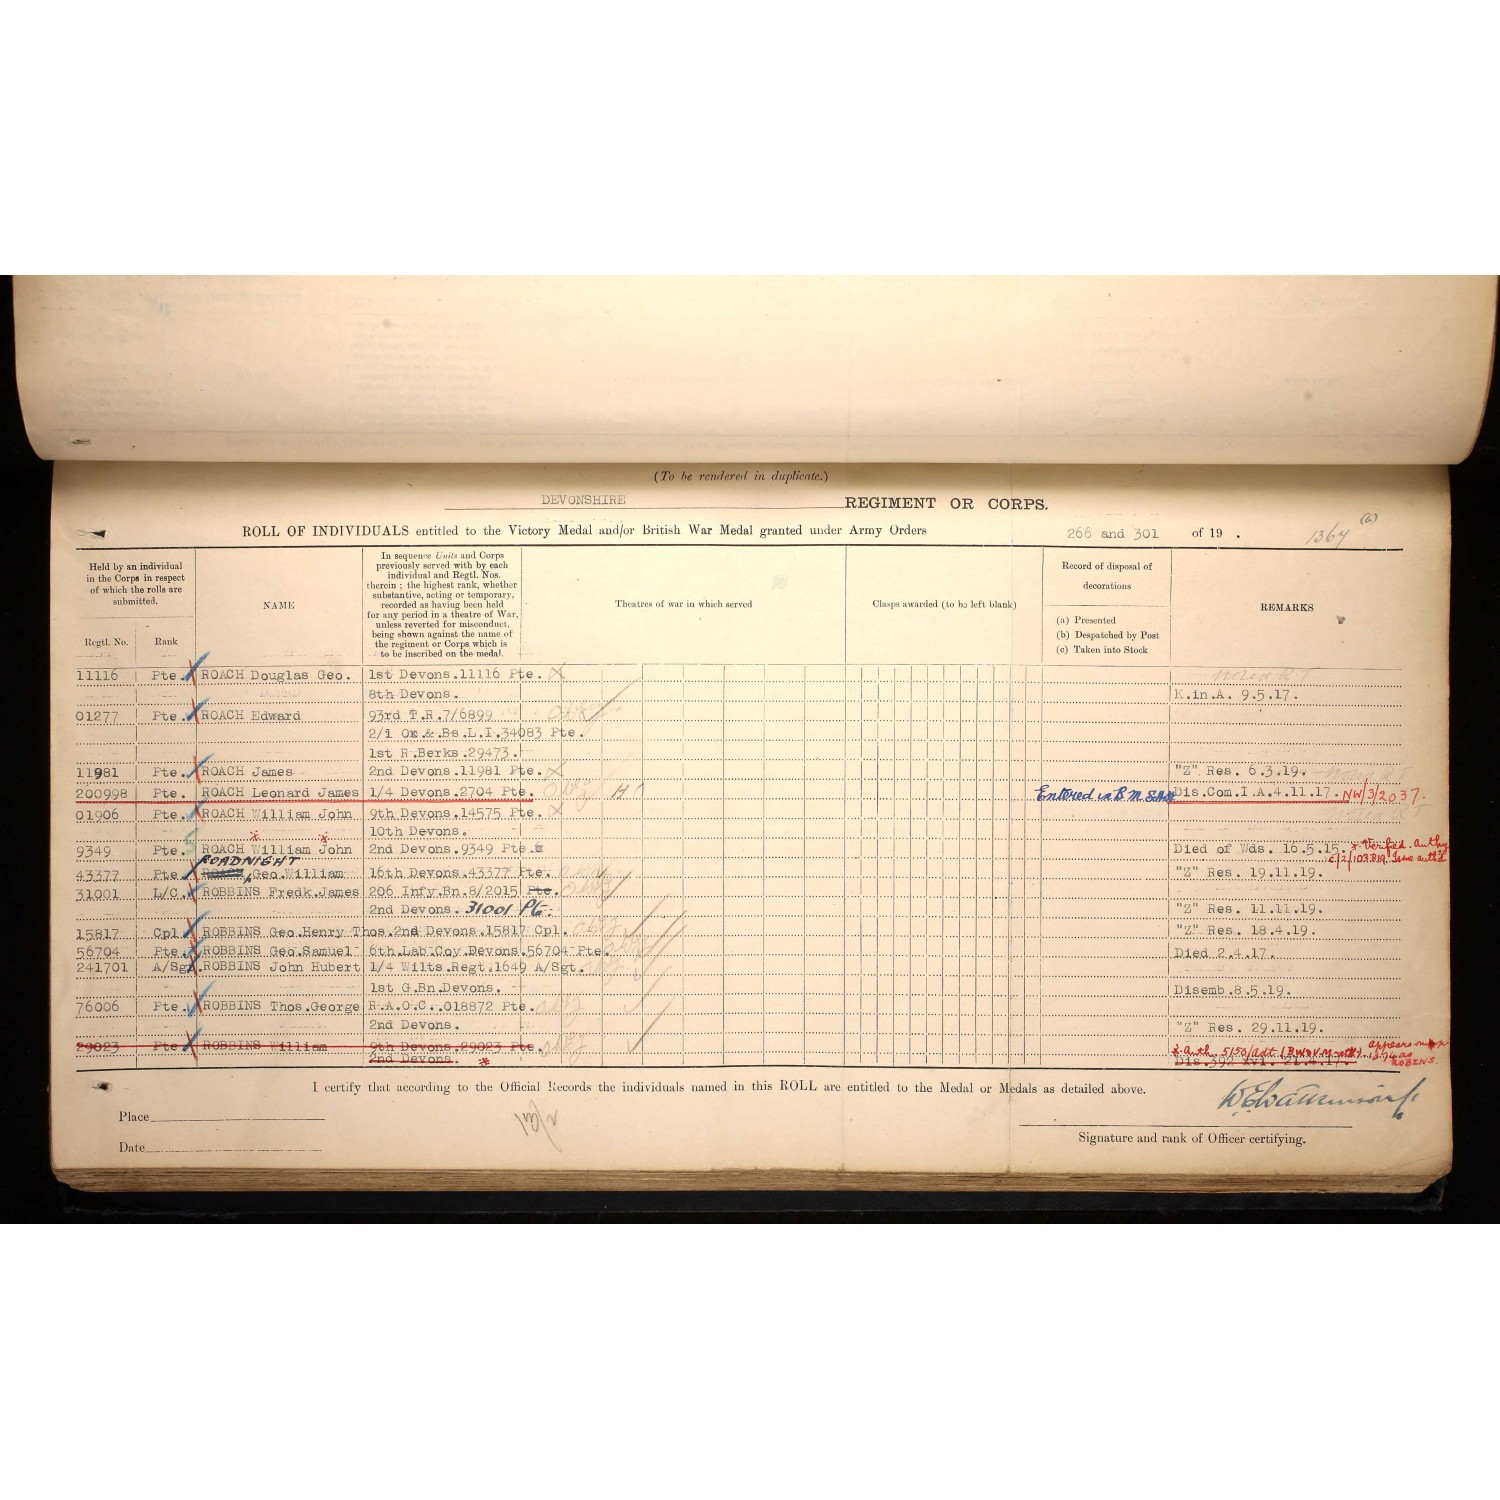 (To be rendered in duplicate.)
DEVONSHIRE REGIMENT OR CORPS.
ROLL OF INDIVIDUALS entitled to the Victory Medal and/or British War Medal granted under Army Orders 266 and 301 of 19 . 1364 (a)
Held by an individual in the Corps in respect of which the rolls are submitted.
Regtl. No. Rank
NAME
In sequence Units and Corps previously served with by each individual and Regtl. Nos. therein ; the highest rank, whether substantive, acting or temporary, recorded as having been held for any period in a theatre of War, unless reverted for misconduct, being shown against the name of the regiment or Corps which is to be inscribed on the medal.
Theatres of war in which served
Clasps awarded (to be left blank)
Record of disposal of decorations
(a) Presented
(b) Despatched by Post
(c) Taken into Stock
REMARKS
11116 Pte. ROACH Douglas Geo. 1st Devons.11116 Pte.
8th Devons. K.in.A. 9.5.17.
01277 Pte. ROACH Edward 93rd T.R.7/6899
2/1 Ox.& Bs.L.I.34083 Pte.
1st R.Berks.29473.
11981 Pte. ROACH James 2nd Devons.11981 Pte. "Z" Res. 6.3.19.
200998 Pte. ROACH Leonard James 1/4 Devons.2704 Pte. H Entered in B.M. Dis.Com.I.A.4.11.17. NW/3/2037.
01906 Pte. ROACH William John 9th Devons.14575 Pte.
10th Devons.
9349 Pte. ROACH William John 2nd Devons.9349 Pte. Died of Wds. 16.5.15. * Verified. Authy
ROADNIGHT
43377 Pte. ROACH, Geo.William 16th Devons.43377 Pte. "Z" Res. 19.11.19.
31001 L/C. ROBBINS Fredk.James 206 Infy.Bn.8/2015 Pte.
2nd Devons. 31001 Pte. "Z" Res. 11.11.19.
15817 Cpl ROBBINS Geo.Henry Thos.2nd Devons.15817 Cpl. "Z" Res. 18.4.19.
56704 Pte. ROBBINS Geo.Samuel 6th.Lab.Coy.Devons.56704 Pte. Died 2.4.17.
241701 A/Sgt. ROBBINS John Hubert 1/4 Wilts.Regt.1649 A/Sgt.
1st G.Bn.Devons. Disemb.8.5.19.
76006 Pte. ROBBINS Thos.George R.A.O.C..018872 Pte.
2nd Devons. "Z" Res. 29.11.19.
29023 Pte ROBBINS William 9th Devons.29023 Pte. * Auth. 5150/Adt appears on 1374 as ROBINS.
2nd Devons. * Dis.392 xvi. 21.4.17.
I certify that according to the Official Records the individuals named in this ROLL are entitled to the Medal or Medals as detailed above.
Place
Date
Signature and rank of Officer certifying.